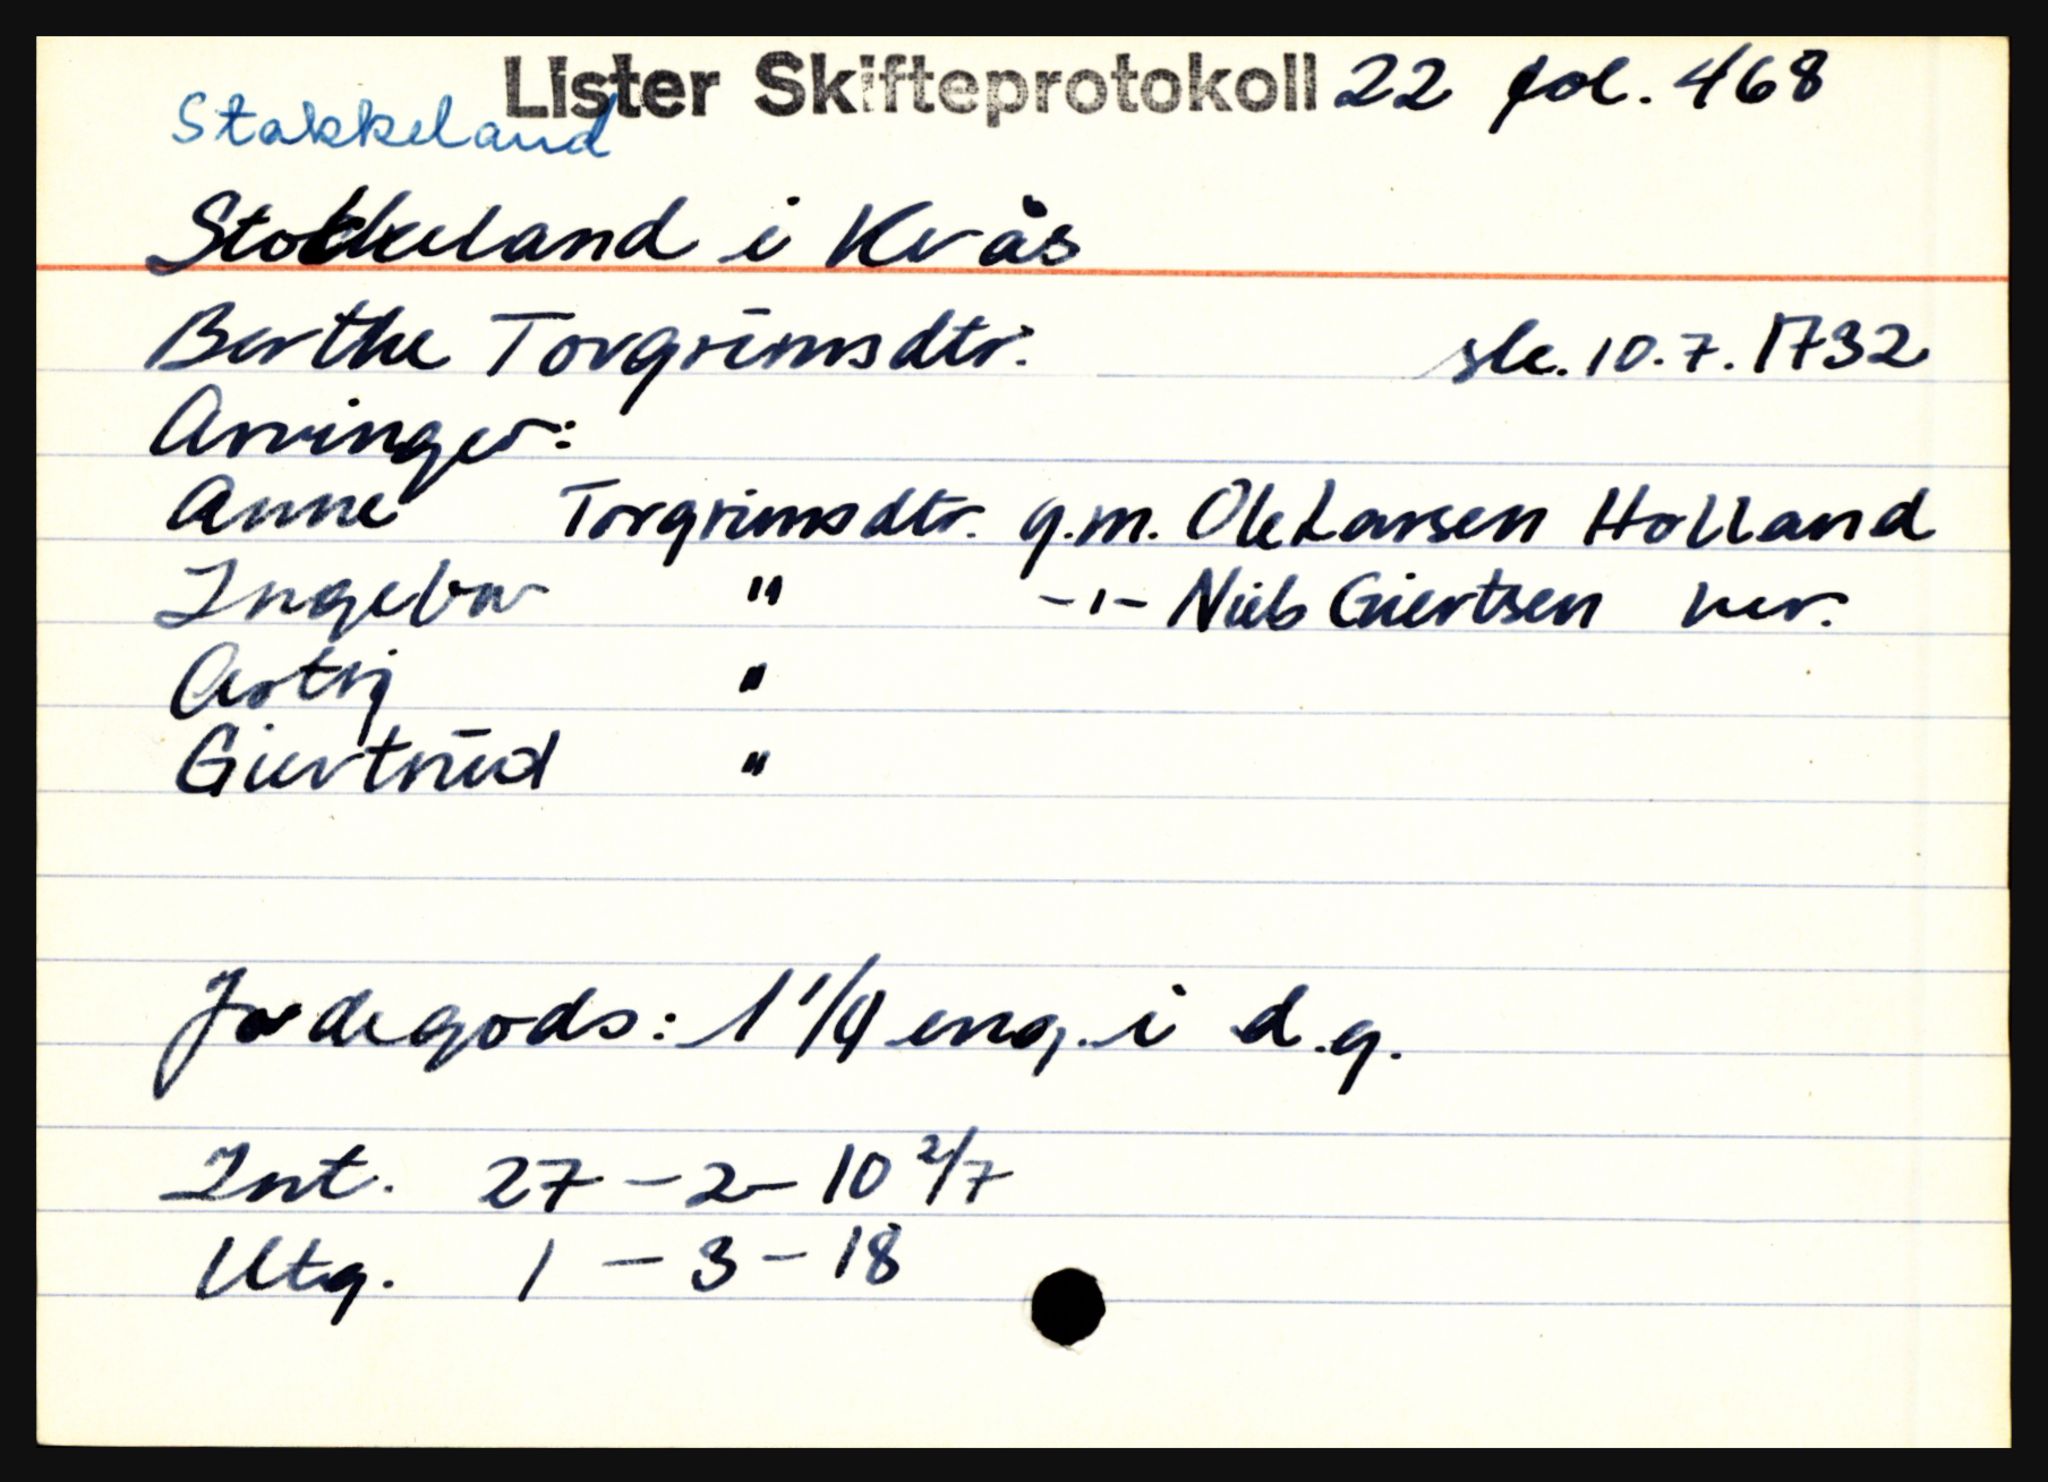 Lister Skifteprotokoll 22 fol. 468
Stakkeland
Stokkeland i Kvås
Berthe Torgrimsdtr. sk. 10.7.1732
Arvinger:
Anne Torgrimsdtr. g.m. Ole Larsen Holland
Ingebor " -"- Niels Giertsen her.
Astrj "
Giertrud "
Jordegods: 1 1/4 eng. i d.g.
Int. 27 - 2 - 10 2/7
Utg. 1 - 3 - 18